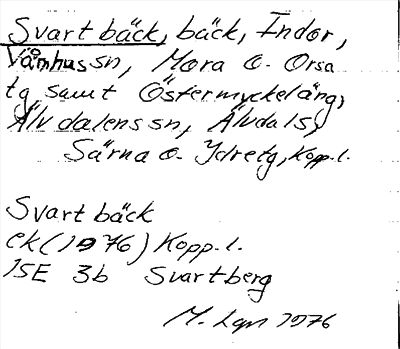 Svartbäck, bäck, Indor,
Våmhus sn, Mora o. Orsa
tg samt Östermyckeläng,
Älvdalens sn, Älvdals,
Särna o. Idre tg, Kopp. l.
Svartbäck
ek (1976) Kopp. l.
15E 3b Svartberg
M. Lgn 1976